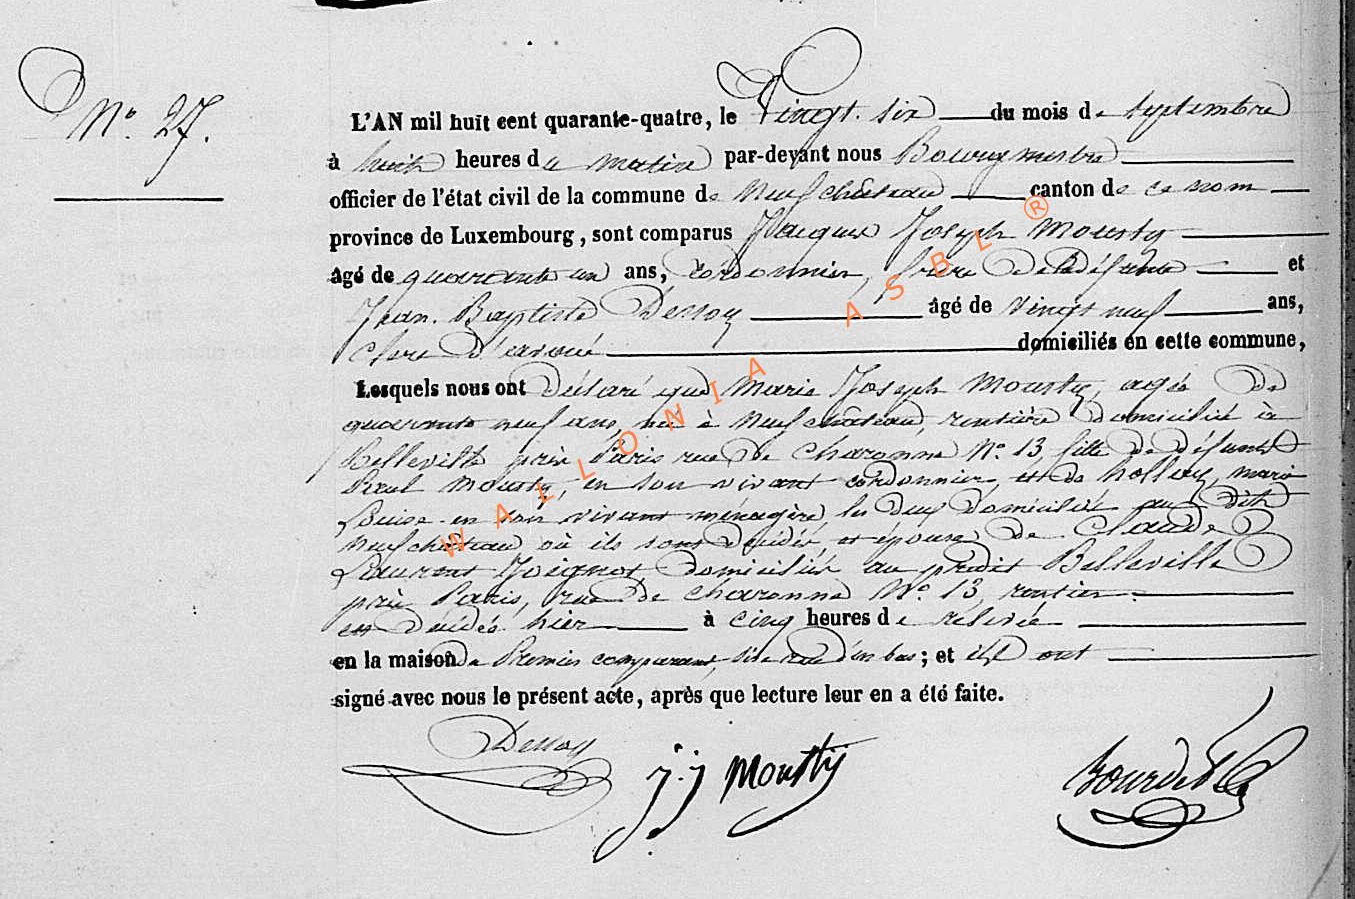 N.° 27.
L'AN mil huit cent quarante-quatre, le Vingt-six du mois de Septembre
à huit heures du matin par-devant nous Bourgmestre
officier de l'état civil de la commune de Neufchâteau canton de ce nom
province de Luxembourg, sont comparus Jacques Joseph Mousty
âgé de quarante un ans, Cordonnier, frère de la défunte et
Jean-Baptiste Dessoy âgé de vingt neuf ans,
clerc d'avoué domiciliés en cette commune,
Lesquels nous ont déclaré que Marie Joseph Mousty, agée de
quarante neuf ans, née à Neufchâteau, rentière domiciliée à
Belleville près Paris rue de Charonne N.° 13, fille de défunt
Paul Mousty, en son vivant cordonnier, et de hollay, marie
Louise en son vivant ménagère, les deux domiciliés au dit
Neufchâteau où ils sont décédés et épouse de Claude
Laurent Joignot, domiciliés au predit Belleville
près Paris, rue de Charonne N.° 13, rentier
est décédée hier à cinq heures de relevée
en la maison du Premier comparant, sise rue d'en bas; et ils ont
signé avec nous le présent acte, après que lecture leur en a été faite.
Dessoy J. J Mousty
WALLONIA ASBL ®